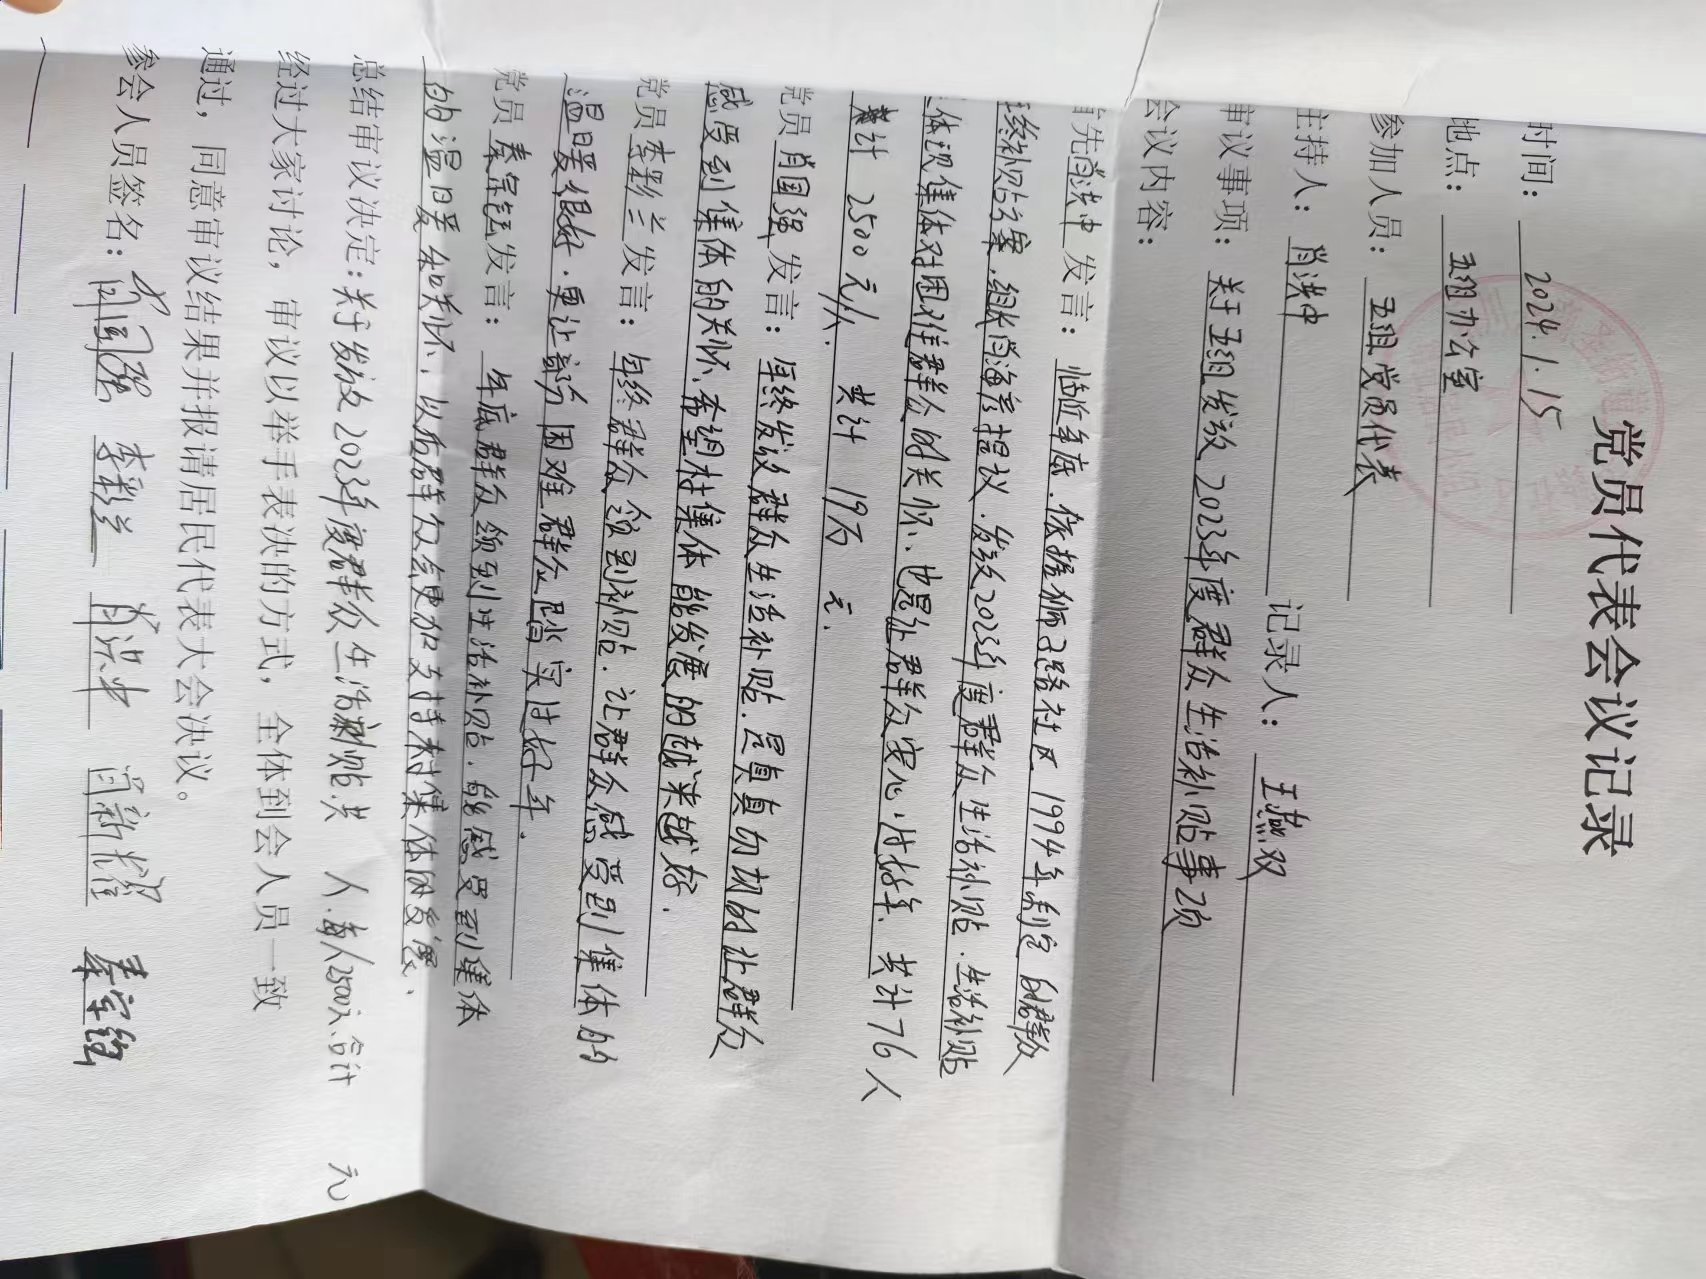 党员代表会议记录
时间：2024.1.15
地点：五组办公室
参加人员：五组党员代表
主持人：肖洪中 记录人：王燕双
审议事项：关于五组发放2023年度群众生活补贴事项
会议内容：
首先肖洪中发言：临近年底.依据狮子路社区1994年制定的群众
年终补贴方案.组长肖海清提议.发放2023年度群众生活补贴.生活补贴
体现集体对困难群众的关怀、也是让群众安心过好年.共计76人
共计2500元/人.共计19万元.
党员肖国强发言：年终发放群众生活补贴.是真真切切的让群众
感受到集体的关怀、希望村集体能发展的越来越好.
党员李彩兰发言：年终群众领到补贴.让群众感受到集体的
温暖很好.更让部分困难群众踏实过好年.
党员秦宝钰发言：年底群众领到生活补贴.能感受到集体
的温暖和关怀、以后群众会更加支持村集体的发展.
总结审议决定：关于发放2023年度群众生活补贴共 人.每人2500元.合计 元
经过大家讨论，审议以举手表决的方式，全体到会人员一致
通过，同意审议结果并报请居民代表大会决议。
参会人员签名：肖国强 李彩兰 肖洪中